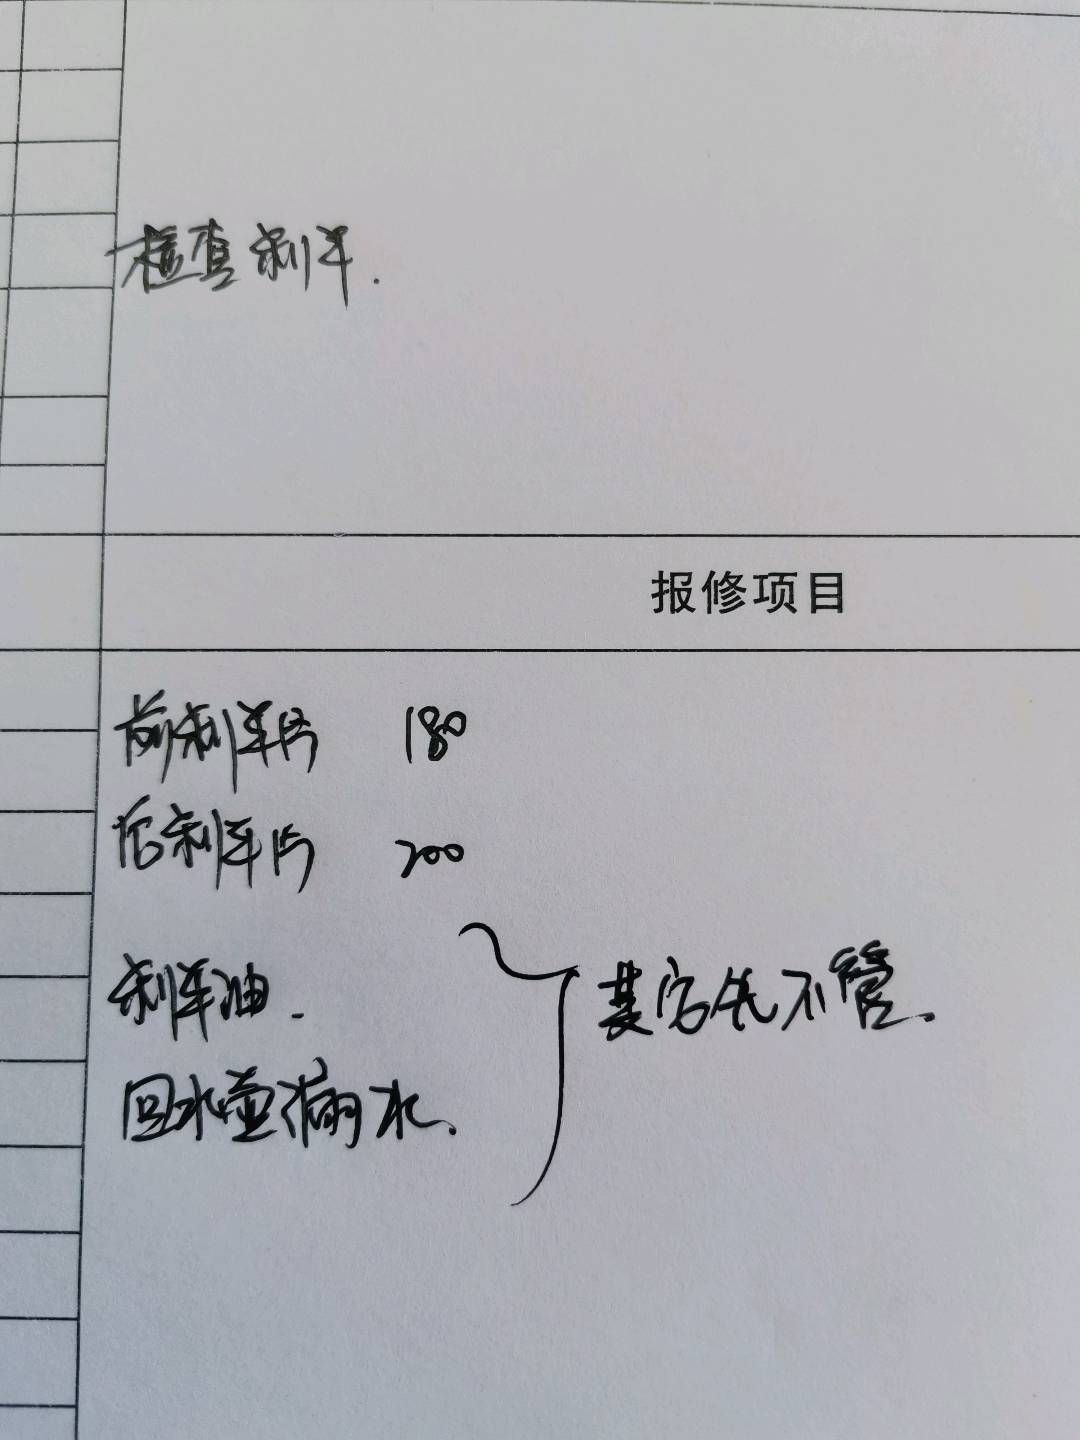 检查刹车.
报修项目
前刹车片 180
后刹车片 200
刹车油.
其它先不管.
回水壶漏水.